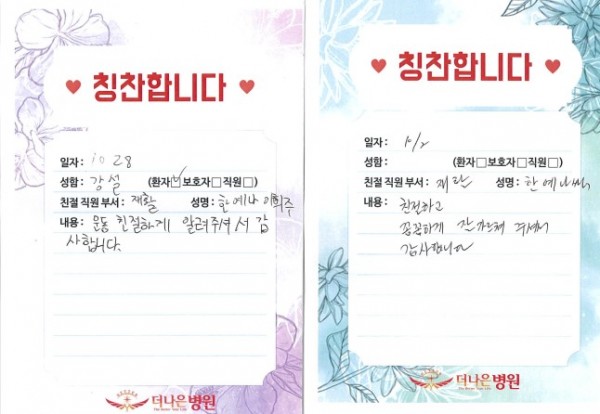 칭찬합니다
일자: 10 28
성함: 강설 (환자☑보호자☐직원☐)
친절 직원 부서: 재활 성명: 한예나 이희주
내용: 운동 친절하게 알려주셔서 감
사합니다.
더나은병원
칭찬합니다
일자:
성함: (환자☐보호자☐직원☐)
친절 직원 부서: 재활 성명: 한예나씨
내용: 친절하고
꼼꼼하게 잘 가르쳐 주셔서
감사합니다
더나은병원